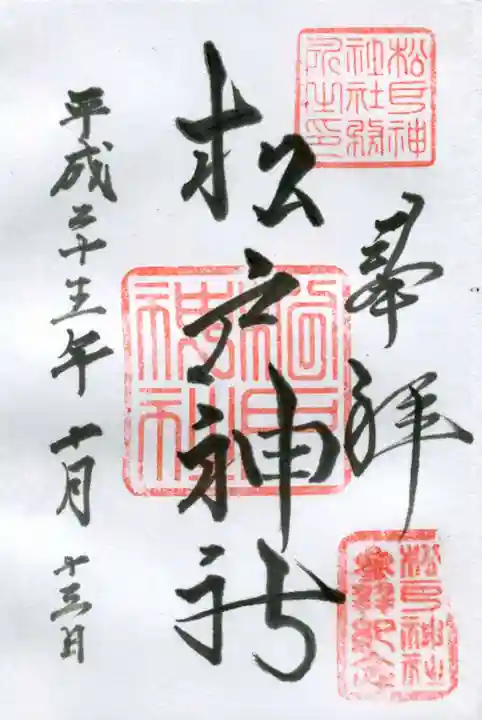 松戸神社社務所之印
奉拝
松戸神社参拝記念
松戸神社
松戸神社
平成二十五年十月十三日